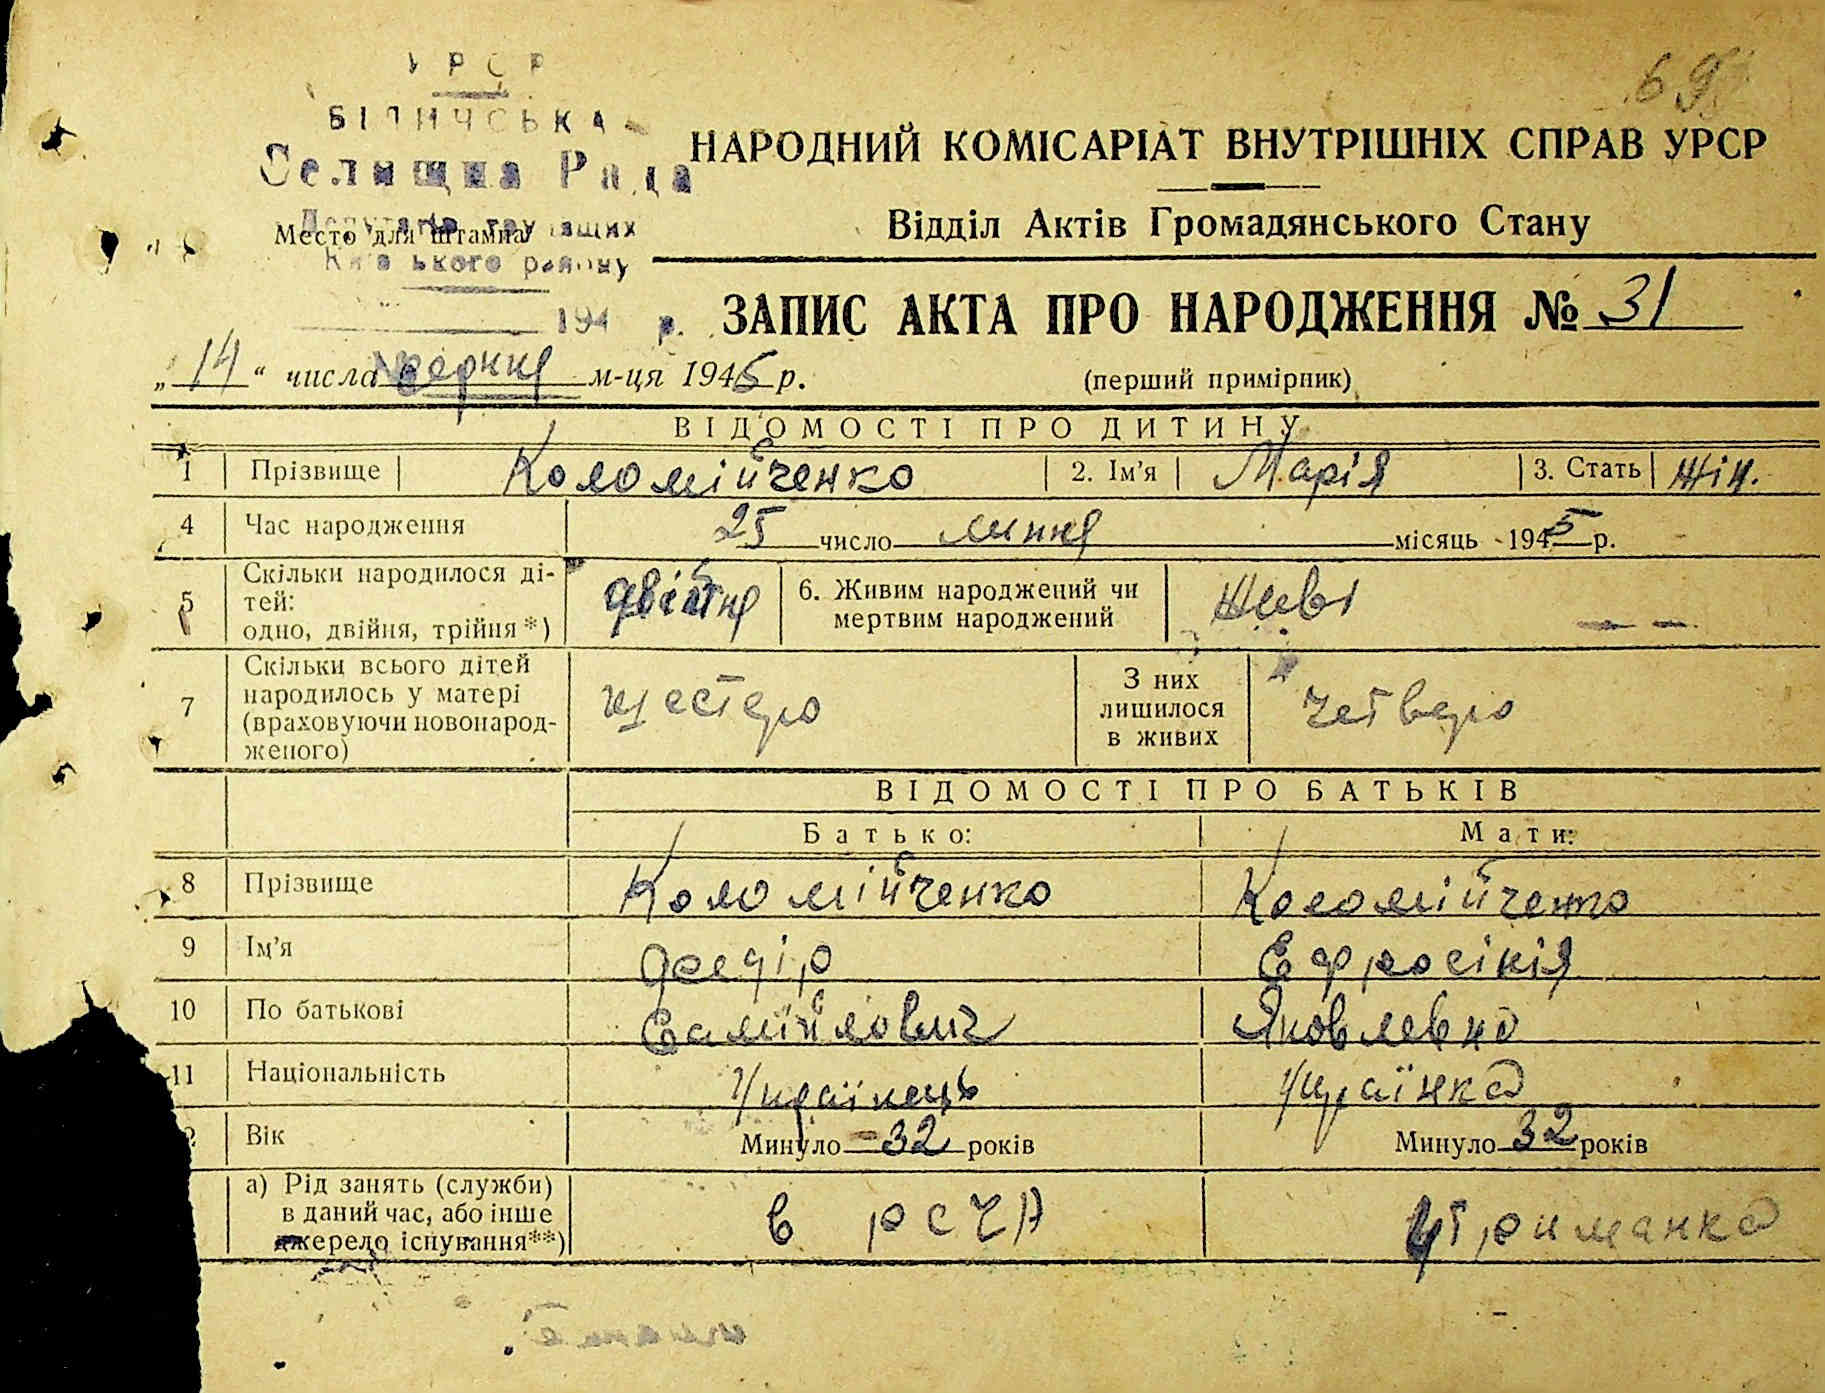 УРСР
69
БІЛИЧСЬКА
Селищна Рада
НАРОДНИЙ КОМІСАРІАТ ВНУТРІШНІХ СПРАВ УРСР
Депутатів трудящих
Место для штампа
Відділ Актів Громадянського Стану
Київського району
194 р.
ЗАПИС АКТА ПРО НАРОДЖЕННЯ № 31
„14“ числа серпня м-ця 1945 р.
(перший примірник)
ВІДОМОСТІ ПРО ДИТИНУ
1 Прізвище Коломійченко 2. Ім'я Марія 3. Стать жін.
4 Час народження 25 число липня місяць 1945 р.
5 Скільки народилося ді-
тей:
одно, двійня, трійня*) двійня 6. Живим народжений чи
мертвим народжений живі
7 Скільки всього дітей
народилось у матері
(враховуючи новонарод-
женого) шестеро З них
лишилося
в живих четверо
ВІДОМОСТІ ПРО БАТЬКІВ
Батько: Мати:
8 Прізвище Коломійченко Коломійченко
9 Ім'я Федір Ефросінія
10 По батькові Самійлович Яковлевна
11 Національність Українець Українка
Вік Минуло 32 років Минуло 32 років
а) Рід занять (служби)
в даний час, або інше
джерело існування**) в РСЧА Утриманка